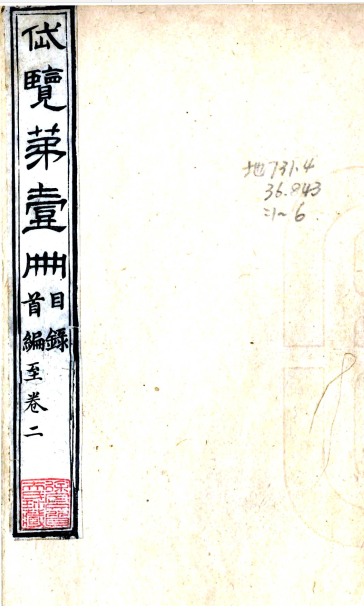 岱覽苐壹冊
目錄
首編至卷二
地731.4
36.843
:1~6